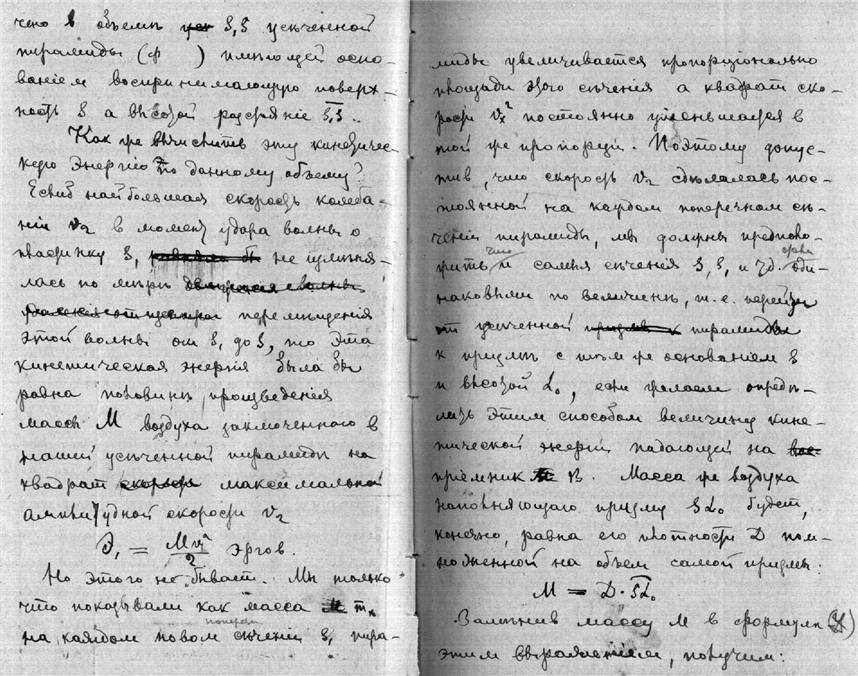 чено в объемѣ S,S усѣченной
пирамиды (ф ) имѣющей осно-
ваніем воспринимающую поверх-
ность S а высотой разстояніе S,S.
Как же вычислить эту кинетичес-
кую энергію по данному объему?
Еслиб наибольшая скорость колеба-
нія v₂ в момент удара волны о
пластинку S, не измѣня-
лась по мѣрѣ перемѣщенія
этой волны от S, до S, то эта
кинетическая энергія была бы
равна половинѣ произведенія
массы М воздуха заключенного в
нашей усѣченной пирамиды на
квадрат максимальной
амплитудной скорости v₂
Э, = Mv₂²/2 эргов.
Но этого не бывает. Мы только
что показывали как масса m
на каждом новом попереч сѣченіи S, пира-
миды увеличивается пропорціонально
площади этого сѣченія а квадрат ско-
рости постоянно уменьшается в
той же пропорціи. Поэтому допус-
тив, что скорость v₂ сдѣлалась пос-
тоянной на каждом поперечном сѣ-
ченіи пирамиды, мы должны предполо-
жить что и самыя сѣченія S, S, и оди-
наковыми по величинѣ, т.е. перейти
от усѣченной пирамиды
к призмѣ с тѣм же основаніем S
и высотой L₀, если желаем опредѣ-
лить этим способом величину кине-
тической энергіи падающей на
пріемник В. Масса же воздуха
наполняющаго призму SL₀ будет,
конечно, равна его плотности D пом-
ноженной на объем самой призмы:
M = D·SL₀
Замѣнив массу М в формулѣ
этим выраженіем, получим: